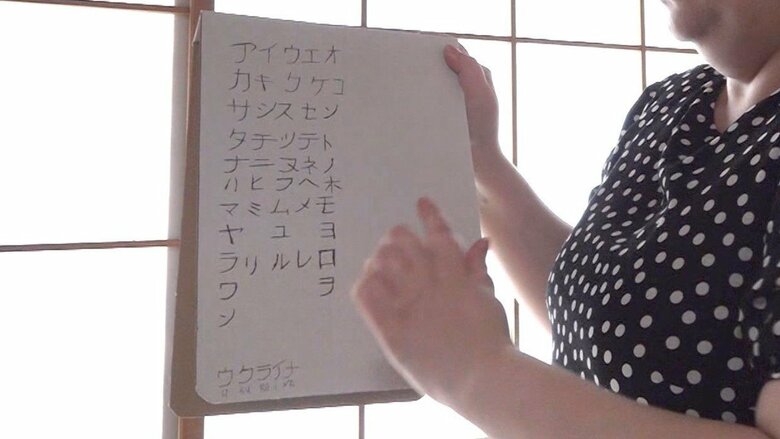 アイウエオ
カキクケコ
サシスセソ
タチツテト
ナニヌネノ
ハヒフヘホ
マミムメモ
ヤ ユ ヨ
ラリルレロ
ワ ヲ
ン
ウクライナ